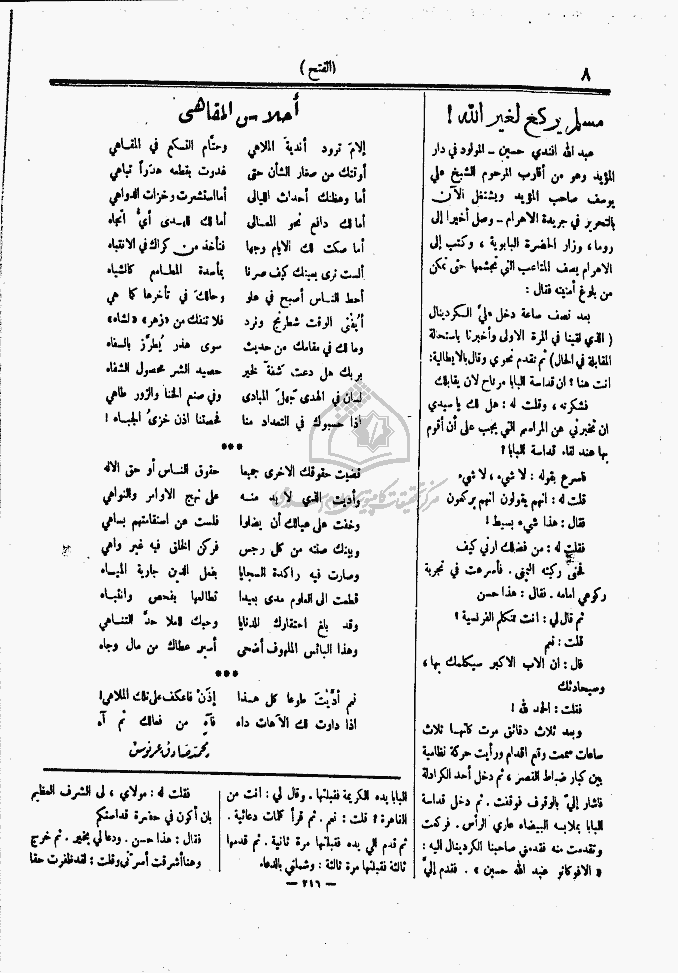 ٨
(الفتح)
مسلم يركع لغير الله !
عبد الله افندي حسين ـ المولود في دار
المؤيد وهو من أقارب المرحوم الشيخ علي
يوسف صاحب المؤيد ويشتغل الآن
بالتحرير في جريدة الاهرام ـ وصل أخيرا إلى
روما، وزار الحضرة البابوية ، وكتب إلى
الاهرام يصف المتاعب التي تجشمها حتى تمكن
من بلوغ أمنيته فقال :
بعد نصف ساعة دخل علىّ الكردينال
( الذي لقينا في المرة الاولى وأخبرنا باستحالة
المقابلة في الحال) ثم تقدم نحوي وقال بالايطالية:
انت هنا ؟ ان قداسة البابا مرتاح لان يقابلك
فشكرته ، وقلت له : هل لك يا سيدي
ان تخبرني عن المراسم التي يجب على أن أقوم
بها عند لقاء قداسة البابا ؟
فأسرع بقوله : لا شيء ، لا شيء
قلت له : انهم يقولون انهم يركعون
فقال : هذا شيء بسيط !
فقلت له : من فضلك ارني كيف
فحنى ركبته اليمنى . فأسرعت في تجربة
ركوعي امامه . فقال : هذا حسن
ثم قال لي : انت تتكلم الفرنسية ؟
قلت : نعم
قال : ان الاب الاكبر سيكلمك بها ،
وسيحادثك
فقلت : الحمد لله !
وبعد ثلاث دقائق مرت كأنها ثلاث
ساعات سمعت وقع اقدام ورأيت حركة نظامية
بين كبار ضباط القصر ، ثم دخل أحد الكرادلة
فأشار إليّ بالوقوف فوقفت . ثم دخل قداسة
البابا بملابسه البيضاء عاري الرأس . فركعت
وتقدمت منه فقدمني صاحبنا الكردينال اليه :
« الافوكاتو عبد الله حسين » . فقدم إليّ
أحلاس المقاهى
إلام ترود أندية الملاهي    وحتّام التسكع في المقاهي
أوتتك من صغار الشأن حتى    فدرت بقطعه هذراً تباهي
أما وعظتك أحداث الليالى    أما استشرت وخزات الدواهي
أما لك دافع نحو المعالى    أما لك للهدى أيُّ اتجاه
أما صكت لك الايام وجها    فتأخذ من كراك في الانتباه
ألست ترى بعينك كيف صرنا    بمأسدة المطامع كالشياه
أحط الناس أصبح في علو    وحالك في تأخرها كما هي
أيُفْنى الوقت شطرنج ونرد    فلا تنفك من «زهر» «لشاه»
وما لك في مقامك من حديث    سوى هذر يُطرَّز بالسفاه
بربك هل دعت كشفة لخير    حصيد الشر محصول الشفاه
لسان في الهدى جهل المبادى    وفي صنع الخنا والزور طاهي
اذا حسبوك في التعداد منا    فحصتنا اذن خزىُ الجباه !
***
قضيت حقوقك الاخرى جميعا    حقوق الناس أو حق الاله
وأديت الذي لا بد منه    على نهج الاوامر والنواهي
وخفت على عيالك أن يضلوا    فلست عن استقامتهم بساهي
وبيتك صنته من كل رجس    فركن الخلق فيه غير واهي
وصارت فيه راكدة السجايا    بفعل الدين جارية المياه
قطعت الى العلوم مدى بعيدا    تطالعها بفحص وانتباه
وقد بلغ احتقارك للدنايا    وحبك للعلا حدَّ التناهي
وهذا البائس الملهوف أضحى    أسير عطاك من مال وجاه
***
نعم أدَّيْتَ طوعا كل هذا    إذَنْ فاعكف على تلك الملاهي!
اذا داوت لك الآهات داه    فآه من فعالك ثم آه
محمد صادق عرنوس
للبابا يده الكريمة فقبلتها . وقال لي : انت من
القاهرة ؟ قلت : نعم . ثم قرأ كلمات دعائية .
ثم قدم الي يده فقبلتها مرة ثانية . ثم قدمها
ثالثة فقبلتها مرة ثالثة : وشملني بالدعاء
فقلت له : مولاي ، لى الشرف العظيم
بان أكون في حضرة قداستكم
فقال : هذا حسن . ودعا لي بخير . ثم خرج
وهنا أشرقت أسرتي وقلت : لقد ظفرت حقا
— ٢١٦ —